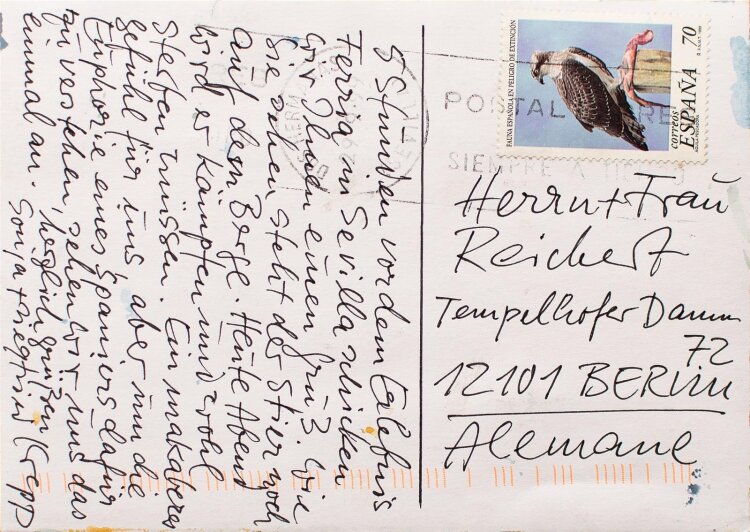 5 Stunden vor dem Erlebnis
Ferria in Sevilla schicken
wir Ihnen einen Gruß. Wie
Sie sehen steht der Stier noch
auf dem Berge. Heute Abend
wird er kämpfen und wohl
sterben müssen. Ein makabres
Gefühl für uns aber um die
Euphorie eines Spaniers dafür
zu verstehen, sehen wir uns das
einmal an. Herzlich grüßen
Sonja + Siegfried Krepp
FAUNA ESPAÑOLA EN PELIGRO DE EXTINCIÓN
correos
ESPAÑA 70
POSTAL
SIEMPRE A
Herrn + Frau
Reichert
Tempelhofer Damm
72
12101 BERLIN
Alemane